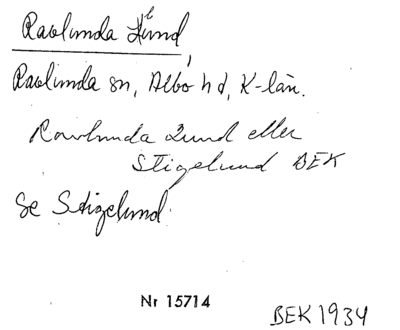 Ravlunda Lund,
Ravlunda sn, Albo hd, K-län.
Ravlunda Lund eller
Stigelund BEK
Se Stigelund
Nr 15714
BEK 1934